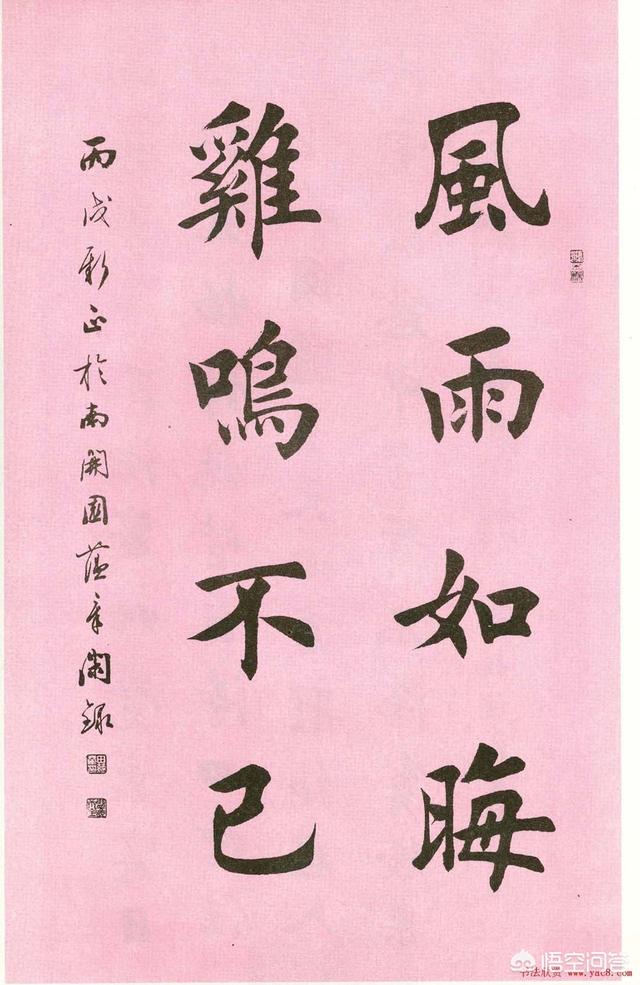 風雨如晦
雞鳴不已
丙戌新正於南開園蘊章錄
悟空问答
书法欣赏 www.yac8.com